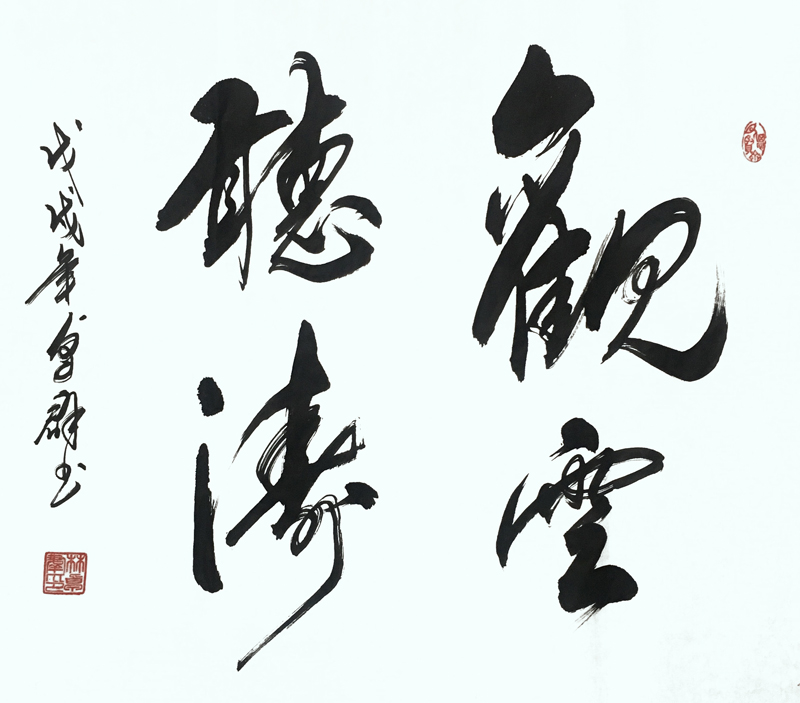 觀雲
聽濤
戊戌年 群书